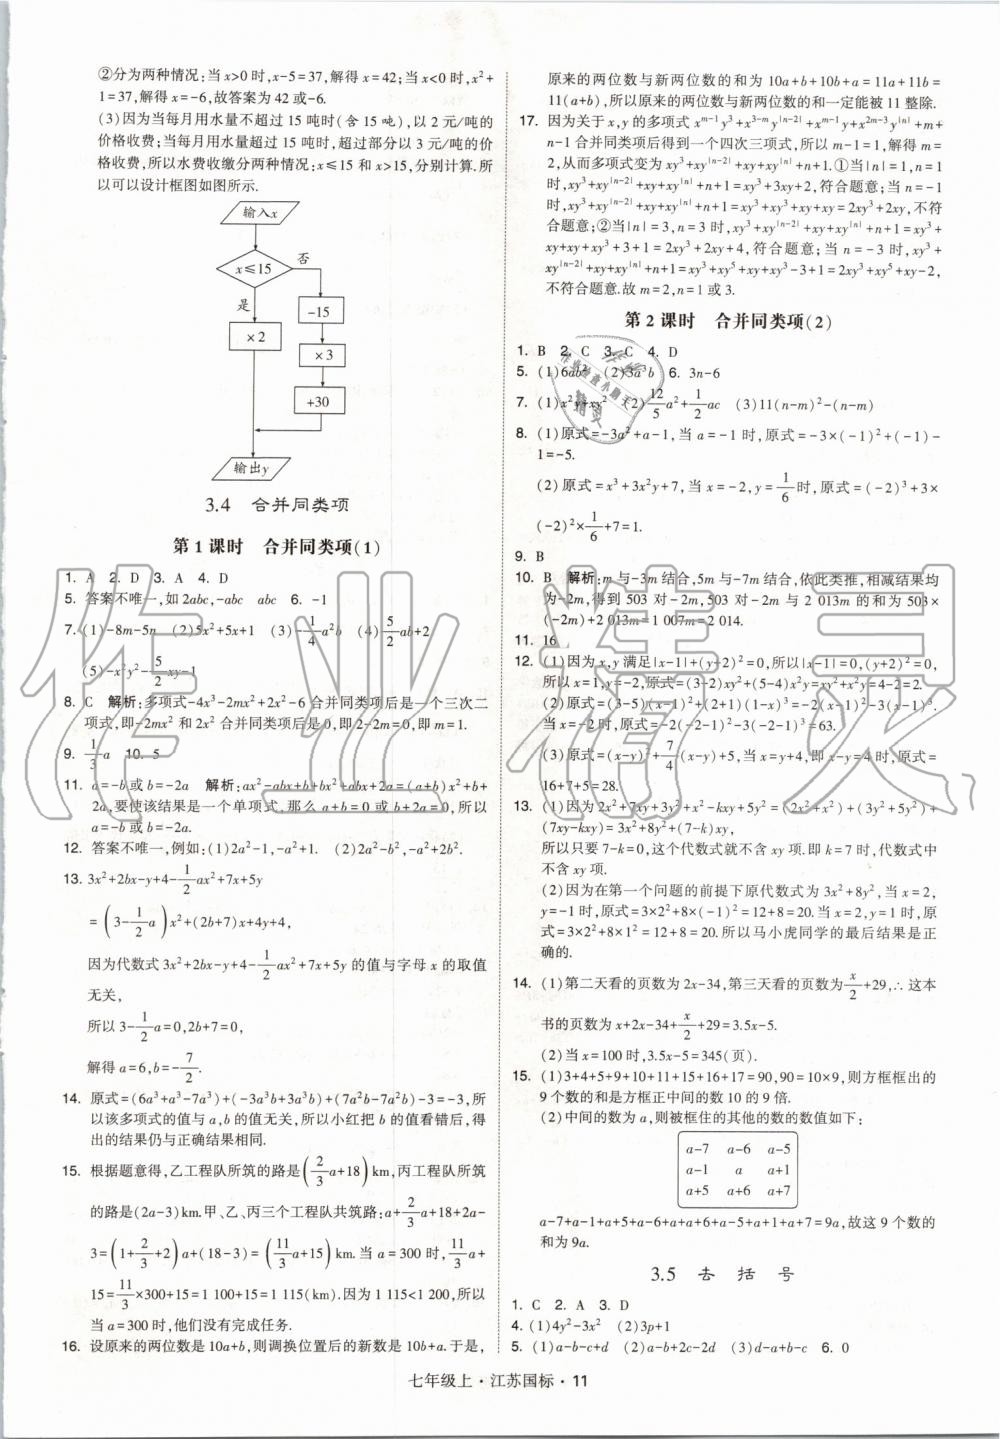 ②分为两种情况:当 x>0 时,x-5=37,解得 x=42;当 x<0 时,x²+
1=37,解得 x=-6,故答案为 42 或-6.
(3)因为当每月用水量不超过 15 吨时(含 15 吨),以 2 元/吨的
价格收费;当每月用水量超过 15 吨时,超过部分以 3 元/吨的
价格收费,所以水费收缴分两种情况:x≤15 和 x>15,分别计算.所
以可以设计框图如图所示.
输入x
x≤15
否
是
-15
×2
×3
+30
输出y
3.4 合并同类项
第 1 课时 合并同类项(1)
1. A 2. D 3. A 4. D
5. 答案不唯一,如 2abc,-abc abc 6. -1
7. (1)-8m-5n (2)5x²+5x+1 (3)-1/4a²b (4)5/2ab+2
(5)-x²y²-5/2xy-1
8. C 解析:多项式-4x³-2mx²+2x²-6 合并同类项后是一个三次二
项式,即-2mx² 和 2x² 合并同类项后是 0,即 2-2m=0,即 m=1.
9. 1/3a 10. 5
11. a=-b 或 b=-2a 解析:ax²-abx+b+bx²+abx+2a=(a+b)x²+b+
2a,要使该结果是一个单项式,那么 a+b=0 或 b+2a=0,所以
a=-b 或 b=-2a.
12. 答案不唯一,例如:(1)2a²-1,-a²+1. (2)2a²-b²,-a²+2b².
13. 3x²+2bx-y+4-1/2ax²+7x+5y
=(3-1/2a)x²+(2b+7)x+4y+4,
因为代数式 3x²+2bx-y+4-1/2ax²+7x+5y 的值与字母 x 的取值
无关,
所以 3-1/2a=0,2b+7=0,
解得 a=6,b=-7/2.
14. 原式=(6a³+a³-7a³)+(-3a³b+3a³b)+(7a²b-7a²b)-3=-3,所
以该多项式的值与 a,b 的值无关,所以小红把 b 的值看错后,得
出的结果仍与正确结果相同.
15. 根据题意得,乙工程队所筑的路是(2/3a+18)km,丙工程队所筑
的路是(2a-3)km.甲、乙、丙三个工程队共筑路:a+2/3a+18+2a-
3=(1+2/3+2)a+(18-3)=(11/3a+15)km.当 a=300 时,11/3a+
15=11/3×300+15=1 100+15=1 115(km).因为 1 115<1 200,所以
当 a=300 时,他们没有完成任务.
16. 设原来的两位数是 10a+b,则调换位置后的新数是 10b+a.于是,
原来的两位数与新两位数的和为 10a+b+10b+a=11a+11b=
11(a+b),所以原来的两位数与新两位数的和一定能被 11 整除.
17. 因为关于 x,y 的多项式 x^(m-1)y³+x^(3-m)y^|n-2|+x^(m-1)y+x^(2m-3)y^|n|+m+
n-1 合并同类项后得到一个四次三项式,所以 m-1=1,解得 m=
2,从而多项式变为 xy³+xy^|n-2|+xy+xy^|n|+n+1.①当|n|=1,n=1
时,xy³+xy^|n-2|+xy+xy^|n|+n+1=xy³+3xy+2,符合题意;当 n=-1
时,xy³+xy^|n-2|+xy+xy^|n|+n+1=xy³+xy³+xy+xy=2xy³+2xy,不符
合题意;②当|n|=3,n=3 时,xy³+xy^|n-2|+xy+xy^|n|+n+1=xy³+
xy+xy+xy³+3+1=2xy³+2xy+4,符合题意;当 n=-3 时,xy³+
xy^|n-2|+xy+xy^|n|+n+1=xy³+xy⁵+xy+xy³-3+1=2xy³+xy⁵+xy-2,
不符合题意.故 m=2,n=1 或 3.
第 2 课时 合并同类项(2)
1. B 2. C 3. C 4. D
5. (1)6ab² (2)3a³b 6. 3n-6
7. (1)x²y+xy² (2)12/5a²+1/2ac (3)11(n-m)²-(n-m)
8. (1)原式=-3a²+a-1,当 a=-1 时,原式=-3×(-1)²+(-1)-
1=-5.
(2)原式=x³+3x²y+7,当 x=-2,y=1/6时,原式=(-2)³+3×
(-2)²×1/6+7=1.
9. B
10. B 解析:m 与-3m 结合,5m 与-7m 结合,依此类推,相减结果均
为-2m,得到 503 对-2m,503 对-2m 与 2 013m 的和为 503×
(-2m)+2 013m=1 007m=2 014.
11. 16
12. (1)因为 x,y 满足|x-1|+(y+2)²=0,所以|x-1|=0,(y+2)²=0,
所以 x=1,y=-2,原式=(3-2)xy²+(5-4)x²y=xy²+x²y=4-2=2.
(2)原式=(3-5)(x-1)²+(2+1)(1-x)³=-2(x-1)²-3(x-1)³.
当 x=-2 时,原式=-2(-2-1)²-3(-2-1)³=63.
(3)原式=(x-y)²+7/4(x-y)+5,当 x=y+4,即 x-y=4 时,原式=
16+7+5=28.
13. (1)因为 2x²+7xy+3y²+x²-kxy+5y²=(2x²+x²)+(3y²+5y²)+
(7xy-kxy)=3x²+8y²+(7-k)xy,
所以只要 7-k=0,这个代数式就不含 xy 项.即 k=7 时,代数式中
不含 xy 项.
(2)因为在第一个问题的前提下原代数式为 3x²+8y²,当 x=2,
y=-1 时,原式=3×2²+8×(-1)²=12+8=20.当 x=2,y=1 时,原
式=3×2²+8×1²=12+8=20.所以马小虎同学的最后结果是正
确的.
14. (1)第二天看的页数为 2x-34,第三天看的页数为x/2+29,∴这本
书的页数为 x+2x-34+x/2+29=3.5x-5.
(2)当 x=100 时,3.5x-5=345(页).
15. (1)3+4+5+9+10+11+15+16+17=90,90=10×9,则方框框出的
9 个数的和是方框正中间的数 10 的 9 倍.
(2)中间的数为 a,则被框住的其他的数的数值如下:
a-7 a-6 a-5
a-1 a a+1
a+5 a+6 a+7
a-7+a-1+a+5+a-6+a+a+6+a-5+a+1+a+7=9a,故这 9 个数的
和为 9a.
3.5 去括号
1. C 2. A 3. D
4. (1)4y²-3x² (2)3p+1
5. (1)a-b-c+d (2)a-b+2c-2d (3)-d+a-b+c 6. 0
七年级上·江苏国标·11
作业精灵